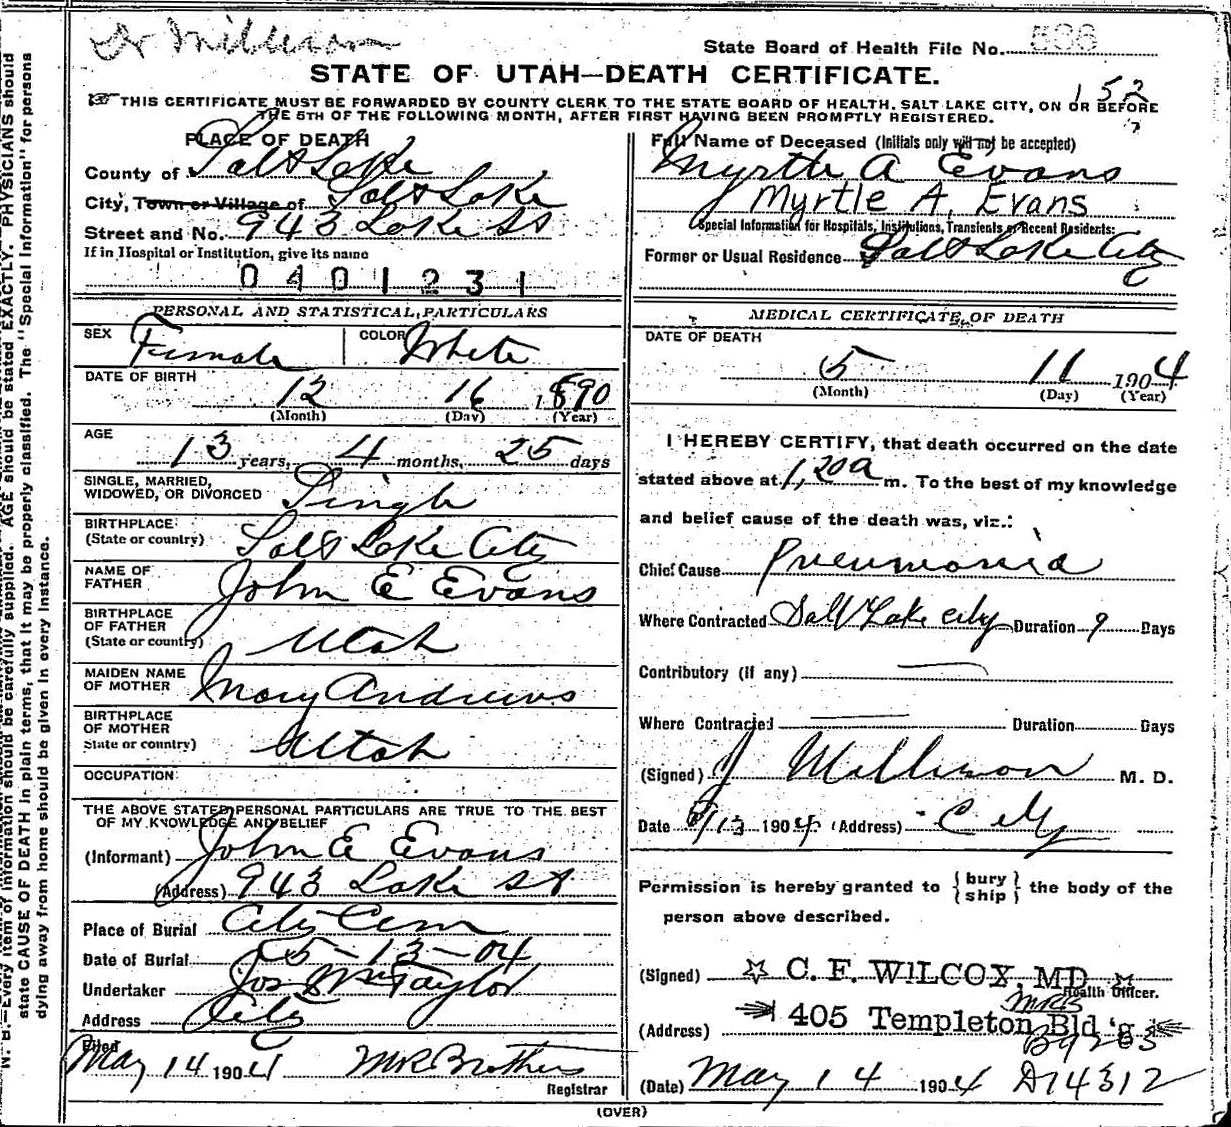 Dr Millerson
State Board of Health File No. 536
STATE OF UTAH—DEATH CERTIFICATE.
152
THIS CERTIFICATE MUST BE FORWARDED BY COUNTY CLERK TO THE STATE BOARD OF HEALTH, SALT LAKE CITY, ON OR BEFORE
THE 5TH OF THE FOLLOWING MONTH, AFTER FIRST HAVING BEEN PROMPTLY REGISTERED.
PLACE OF DEATH
County of Salt Lake
City, Town or Village of Salt Lake
Street and No. 943 Lake St
If in Hospital or Institution, give its name
0401231
PERSONAL AND STATISTICAL PARTICULARS
SEX Female COLOR White
DATE OF BIRTH 12 16 1890
(Month) (Day) (Year)
AGE
13 years, 4 months, 25 days
SINGLE, MARRIED,
WIDOWED, OR DIVORCED Single
BIRTHPLACE
(State or country) Salt Lake City
NAME OF
FATHER John E Evans
BIRTHPLACE
OF FATHER
(State or country) Utah
MAIDEN NAME
OF MOTHER Mary Andrews
BIRTHPLACE
OF MOTHER
State or country) Utah
OCCUPATION
THE ABOVE STATED PERSONAL PARTICULARS ARE TRUE TO THE BEST
OF MY KNOWLEDGE AND BELIEF
(Informant) John E Evans
(Address) 943 Lake St
Place of Burial City Cem
Date of Burial 5-13-04
Undertaker Jos Wm Taylor
Address City
Filed
May 14 1904 M R Brothers
Registrar
Full Name of Deceased (Initials only will not be accepted)
Myrtle A Evans
Myrtle A. Evans
Special Information for Hospitals, Institutions, Transients or Recent Residents:
Former or Usual Residence Salt Lake City
MEDICAL CERTIFICATE OF DEATH
DATE OF DEATH
5 11 1904
(Month) (Day) (Year)
I HEREBY CERTIFY, that death occurred on the date
stated above at 1,20 a m. To the best of my knowledge
and belief cause of the death was, viz.:
Chief Cause Pneumonia
Where Contracted Salt Lake city Duration 9 Days
Contributory (if any) —
Where Contracted — Duration Days
(Signed) J Millerson M. D.
Date 5/13 1904 (Address) City
Permission is hereby granted to {bury
ship} the body of the
person above described.
(Signed) ☆ C. F. WILCOX, MD ☆
Health Officer.
(Address) 405 Templeton Bld'g
(Date) May 14 1904 D14312
(OVER)
N. B.—Every item of information should be carefully supplied. AGE should be stated EXACTLY. PHYSICIANS should
state CAUSE OF DEATH in plain terms, that it may be properly classified. The "Special Information" for persons
dying away from home should be given in every instance.